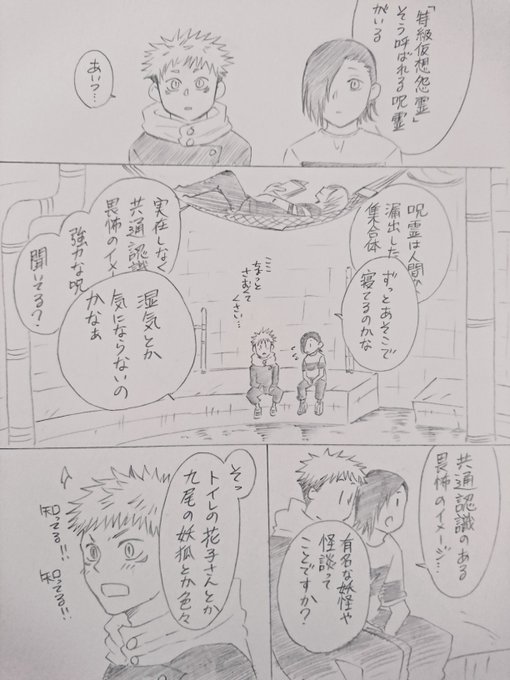 「特級仮想怨霊」
そう呼ばれる呪霊
がいる
あいつ…
呪霊は人間から
漏出した
集合体
ずっとあそこで
寝てるのかな
実在しなく
共通認識
畏怖のイメ
強力な呪
聞いてる？
湿気とか
気にならないの
かなぁ
ここ
ちょっと
くさい…
共通認識のある
畏怖のイメージ…
有名な妖怪や
怪談って
ことですか？
そっ
トイレの花子さんとか
九尾の妖狐とか色々
知ってる!!
知ってる!!